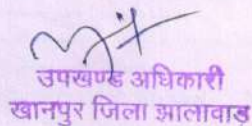 उपखण्ड अधिकारी
खानपुर जिला झालावाड